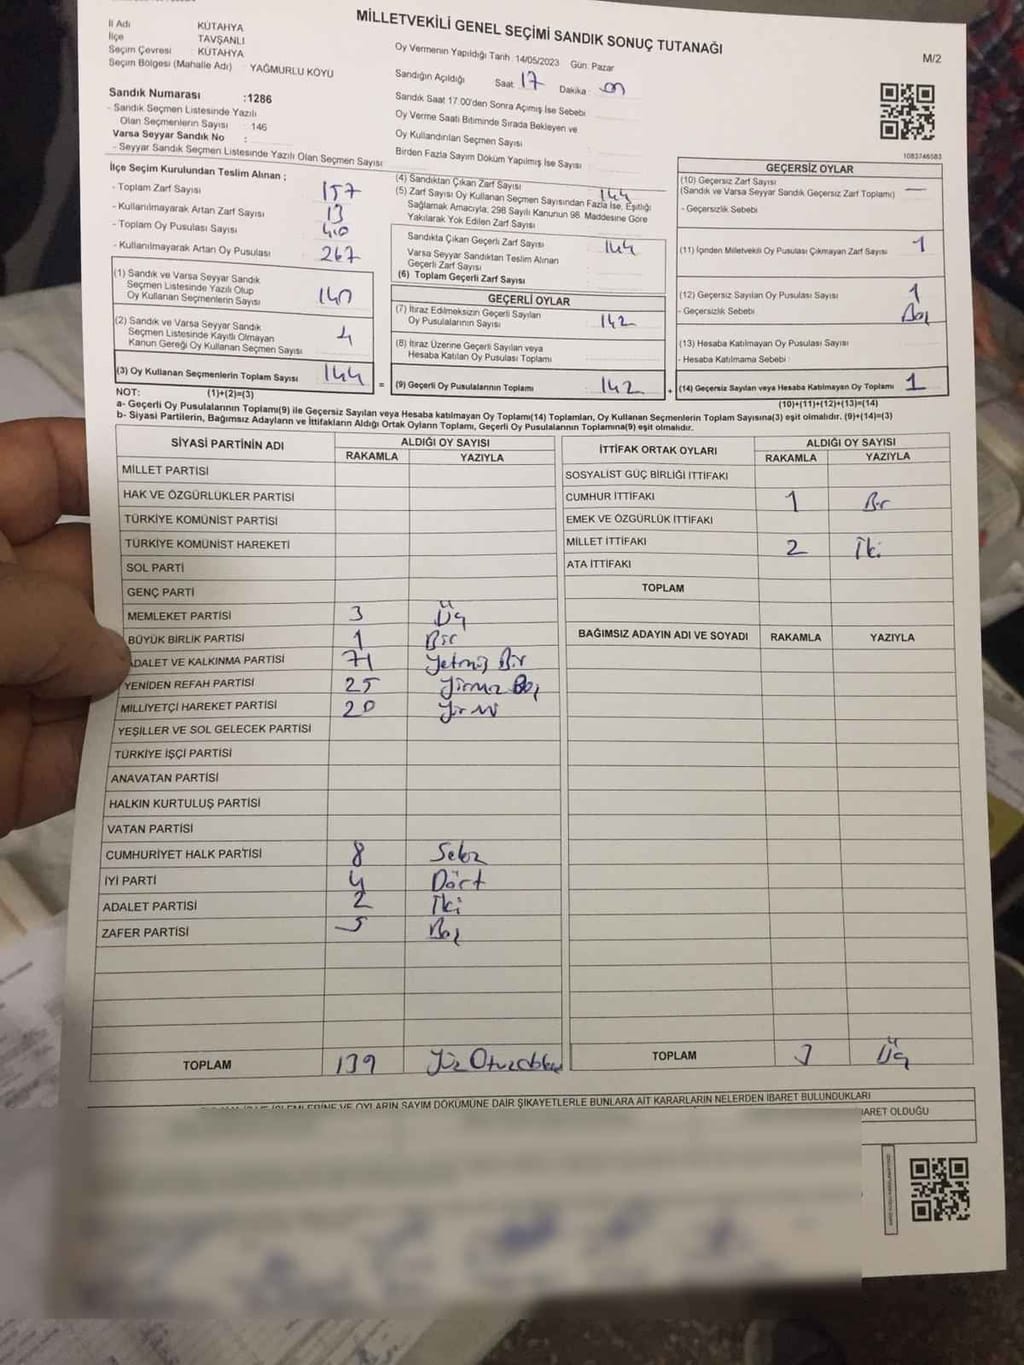 MİLLETVEKİLİ GENEL SEÇİMİ SANDIK SONUÇ TUTANAĞI
M/2
İl Adı KÜTAHYA
İlçe TAVŞANLI
Seçim Çevresi : KÜTAHYA
Seçim Bölgesi (Mahalle Adı) : YAĞMURLU KÖYÜ
Sandık Numarası :1286
- Sandık Seçmen Listesinde Yazılı
Olan Seçmenlerin Sayısı : 146
Varsa Seyyar Sandık No :
- Seyyar Sandık Seçmen Listesinde Yazılı Olan Seçmen Sayısı
Oy Vermenin Yapıldığı Tarih :14/05/2023 Gün: Pazar
Sandığın Açıldığı Saat: 17 Dakika:
Sandık Saat 17:00'den Sonra Açımış İse Sebebi
Oy Verme Saati Bitiminde Sırada Bekleyen ve
Oy Kullandırılan Seçmen Sayısı
Birden Fazla Sayım Döküm Yapılmış İse Sayısı
1083746583
İlçe Seçim Kurulundan Teslim Alınan ;
- Toplam Zarf Sayısı 157
- Kullanılmayarak Artan Zarf Sayısı 13
- Toplam Oy Pusulası Sayısı
- Kullanılmayarak Artan Oy Pusulası 267
(1) Sandık ve Varsa Seyyar Sandık
Seçmen Listesinde Yazılı Olup
Oy Kullanan Seçmenlerin Sayısı 140
(2) Sandık ve Varsa Seyyar Sandık
Seçmen Listesinde Kayıtlı Olmayan
Kanun Gereği Oy Kullanan Seçmen Sayısı 4
(3) Oy Kullanan Seçmenlerin Toplam Sayısı 144 =
(4) Sandıktan Çıkan Zarf Sayısı 144
(5) Zarf Sayısı Oy Kullanan Seçmen Sayısından Fazla İse, Eşitliği
Sağlamak Amacıyla, 298 Sayılı Kanunun 98. Maddesine Göre
Yakılarak Yok Edilen Zarf Sayısı
Sandıkta Çıkan Geçerli Zarf Sayısı 144
Varsa Seyyar Sandıktan Teslim Alınan
Geçerli Zarf Sayısı
(6) Toplam Geçerli Zarf Sayısı
GEÇERLİ OYLAR
(7) İtiraz Edilmeksizin Geçerli Sayılan
Oy Pusulalarının Sayısı 142
(8) İtiraz Üzerine Geçerli Sayılan veya
Hesaba Katılan Oy Pusulası Toplamı
(9) Geçerli Oy Pusulalarının Toplamı 142 +
GEÇERSİZ OYLAR
(10) Geçersiz Zarf Sayısı
(Sandık ve Varsa Seyyar Sandık Geçersiz Zarf Toplamı) —
- Geçersizlik Sebebi
(11) İçinden Milletvekili Oy Pusulası Çıkmayan Zarf Sayısı 1
(12) Geçersiz Sayılan Oy Pusulası Sayısı 1
- Geçersizlik Sebebi Boş
(13) Hesaba Katılmayan Oy Pusulası Sayısı
- Hesaba Katılmama Sebebi
(14) Geçersiz Sayılan veya Hesaba Katılmayan Oy Pusulası Toplamı 1
NOT: (1)+(2)=(3) (10)+(11)+(12)+(13)=(14)
a- Geçerli Oy Pusulalarının Toplamı(9) ile Geçersiz Sayılan veya Hesaba katılmayan Oy Toplamı(14) Toplamları, Oy Kullanan Seçmenlerin Toplam Sayısına(3) eşit olmalıdır. (9)+(14)=(3)
b- Siyasi Partilerin, Bağımsız Adayların ve İttifakların Aldığı Ortak Oyların Toplamı, Geçerli Oy Pusulalarının Toplamına(9) eşit olmalıdır.
SİYASİ PARTİNİN ADI ALDIĞI OY SAYISI
RAKAMLA YAZIYLA
MİLLET PARTİSİ
HAK VE ÖZGÜRLÜKLER PARTİSİ
TÜRKİYE KOMÜNİST PARTİSİ
TÜRKİYE KOMÜNİST HAREKETİ
SOL PARTİ
GENÇ PARTİ
MEMLEKET PARTİSİ 3 Üç
BÜYÜK BİRLİK PARTİSİ 1 Bir
ADALET VE KALKINMA PARTİSİ 71 Yetmiş Bir
YENİDEN REFAH PARTİSİ 25 Yirmi Beş
MİLLİYETÇİ HAREKET PARTİSİ 20 Yirmi
YEŞİLLER VE SOL GELECEK PARTİSİ
TÜRKİYE İŞÇİ PARTİSİ
ANAVATAN PARTİSİ
HALKIN KURTULUŞ PARTİSİ
VATAN PARTİSİ
CUMHURİYET HALK PARTİSİ 8 Sekiz
İYİ PARTİ 4 Dört
ADALET PARTİSİ 2 İki
ZAFER PARTİSİ 5 Beş
TOPLAM 139 Yüz Otuzdokuz
İTTİFAK ORTAK OYLARI ALDIĞI OY SAYISI
RAKAMLA YAZIYLA
SOSYALİST GÜÇ BİRLİĞİ İTTİFAKI
CUMHUR İTTİFAKI 1 Bir
EMEK VE ÖZGÜRLÜK İTTİFAKI
MİLLET İTTİFAKI 2 İki
ATA İTTİFAKI
TOPLAM
BAĞIMSIZ ADAYIN ADI VE SOYADI RAKAMLA YAZIYLA
TOPLAM 3 Üç
İŞLEMLERİNE VE OYLARIN SAYIM DÖKÜMÜNE DAİR ŞİKAYETLERLE BUNLARA AİT KARARLARIN NELERDEN İBARET BULUNDUKLARI
İBARET OLDUĞU